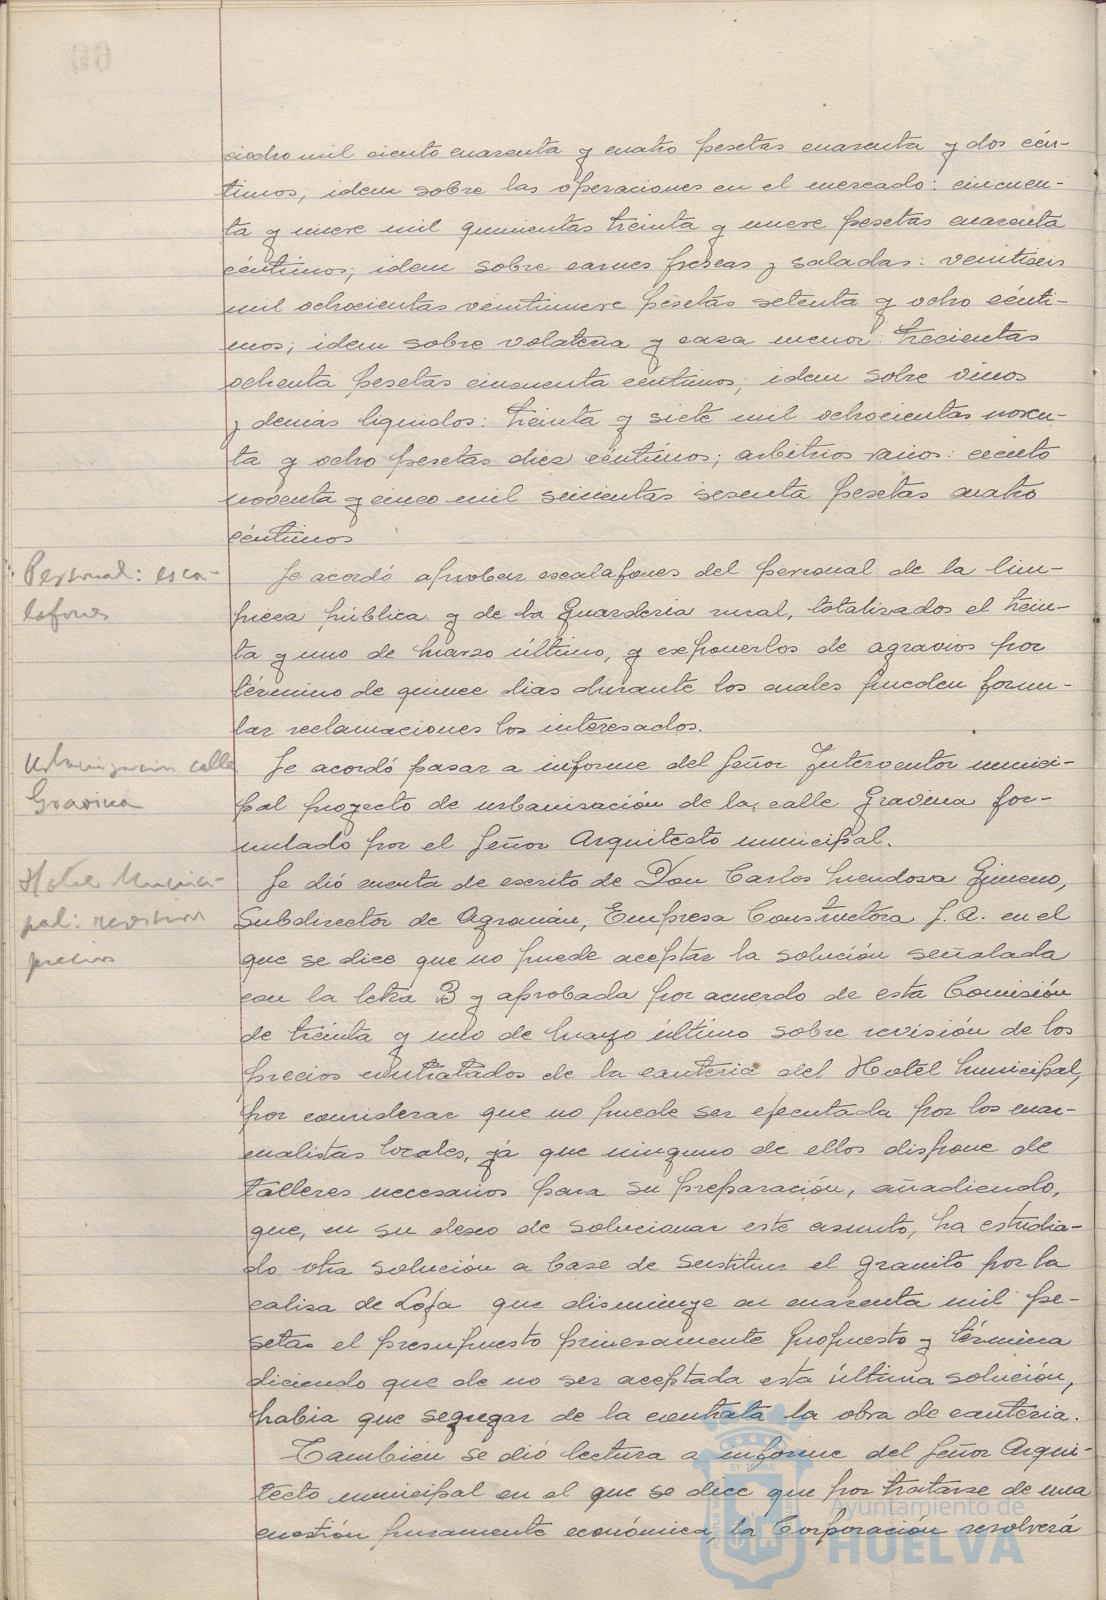 ciocho mil ciento cuarenta y cuatro pesetas cuarenta y dos cén-
timos; idem sobre las operaciones en el mercado: cincuen-
ta y nueve mil quinientas treinta y nueve pesetas cuarenta
céntimos; idem sobre carnes frescas y saladas: veintiseis
mil ochocientas veintinueve pesetas setenta y ocho cénti-
mos; idem sobre volateria y caza menor: trecientas
ochenta pesetas cincuenta centimos; idem sobre vinos
y demás liquidos: treinta y siete mil ochocientas noven-
ta y ocho pesetas diez céntimos; arbitrios varios: ciento
noventa y cinco mil seiscientas sesenta pesetas cuatro
céntimos
Personal: esca-
lafones
Se acordó aprobar escalafones del personal de la lim-
pieza pública y de la Guarderia rural, totalizados el trein-
ta y uno de marzo último, y exponerlos de agravios por
término de quince dias durante los cuales pueden formu-
lar reclamaciones los interesados.
Urbanización calle
Gravina
Se acordó pasar a informe del Señor Interventor munici-
pal proyecto de urbanisación de la calle Gravina for-
mulado por el Señor Arquitecto municipal.
Hotel Munici-
pal: revision
precios
Se dió cuenta de escrito de Don Carlos Mendoza Gimeno,
Subdirector de Agromán, Empresa Constructora S. A. en el
que se dice que no puede aceptar la solución señalada
con la letra B y aprobada por acuerdo de esta Comisión
de treinta y uno de mayo último sobre revisión de los
precios contratados de la canteria del Hotel Municipal,
por considerar que no puede ser ejecutada por los mar-
molistas locales, ya que ninguno de ellos dispone de
talleres necesarios para su preparación, añadiendo,
que, en su deseo de solucionar este asunto, ha estudia-
do otra solución a base de sustituir el granito por la
caliza de Loja que disminuye en cuarenta mil pe-
setas el presupuesto primeramente propuesto y términa
diciendo que de no ser aceptada esta última solución,
habia que segregar de la contrata la obra de canteria.
Tambien se dió lectura a informe del Señor Arqui-
tecto municipal en el que se dice que por tratarse de una
cuestión puramente económica, la Corporación resolverá
Ayuntamiento de
HUELVA